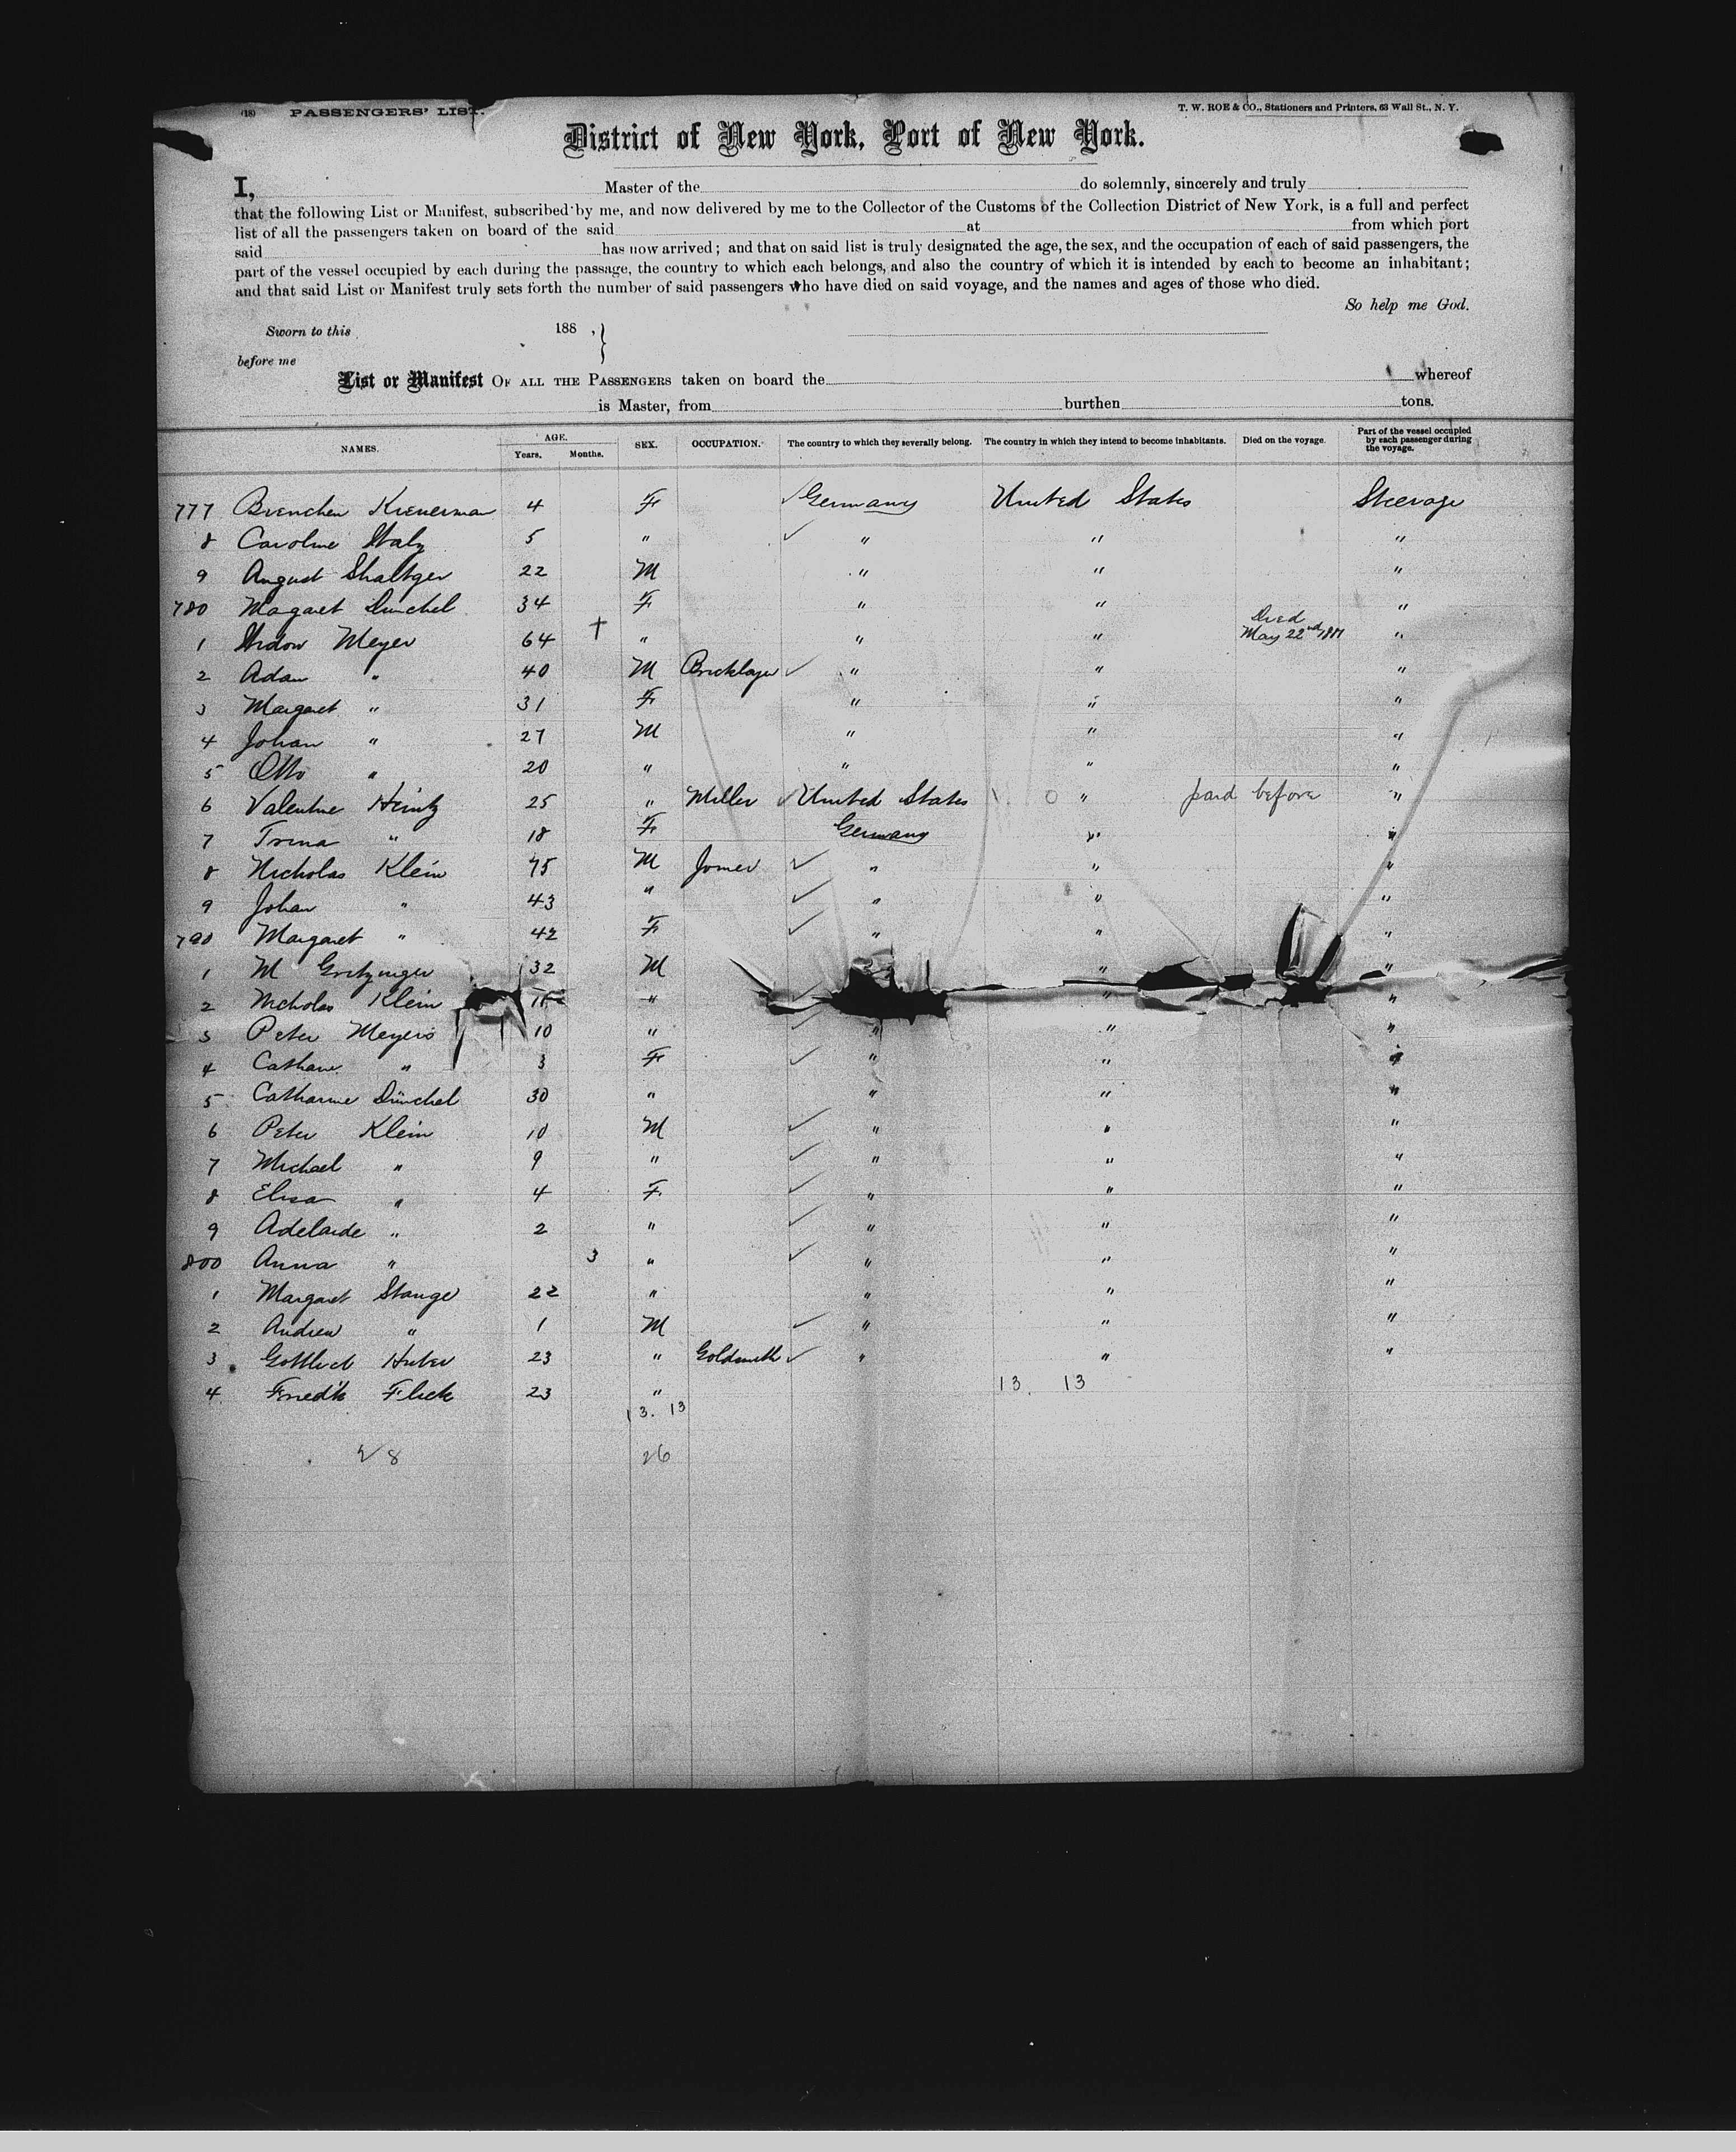 (18) PASSENGERS' LIST. T. W. ROE & CO., Stationers and Printers, 63 Wall St., N. Y.
District of New York, Port of New York.
I, Master of the do solemnly, sincerely and truly
that the following List or Manifest, subscribed by me, and now delivered by me to the Collector of the Customs of the Collection District of New York, is a full and perfect
list of all the passengers taken on board of the said at from which port
said has now arrived; and that on said list is truly designated the age, the sex, and the occupation of each of said passengers, the
part of the vessel occupied by each during the passage, the country to which each belongs, and also the country of which it is intended by each to become an inhabitant;
and that said List or Manifest truly sets forth the number of said passengers who have died on said voyage, and the names and ages of those who died.
So help me God.
Sworn to this 188 , }
before me
List or Manifest OF ALL THE PASSENGERS taken on board the whereof
is Master, from burthen tons.
NAMES. AGE. Years. Months. SEX. OCCUPATION. The country to which they severally belong. The country in which they intend to become inhabitants. Died on the voyage. Part of the vessel occupied by each passenger during the voyage.
777 4 F Germany United States Steerage
8 Caroline 5 " " " "
9 August 22 M " " "
780 Margaret Dünchel 34 F " " "
1 Widow Meyer 64 † " " " Died May 22nd "
2 Adam " 40 M Bricklayer " " "
3 Margaret " 31 F " " "
4 Johan " 27 M " " "
5 Otto " 20 " " " "
6 Valentine Heintz 25 " Miller United States " paid before "
7 Trina " 18 F Germany " "
8 Nicholas Klein 75 M Joiner " " "
9 Johan " 43 " " " "
790 Margaret " 42 F " " "
1 M 32 M " "
2 Nicholas Klein " " "
3 Peter Meyers 10 " " " "
4 " 3 F " " "
5 Catharine Dünchel 30 " " " "
6 Peter Klein 10 M " " "
7 Michael " 9 " " " "
8 Elisa " 4 F " " "
9 Adelaide " 2 " " " "
800 Anna " 3 " " " "
1 Margaret Stange 22 " " " "
2 Andrew " 1 M " " "
3 Gottlieb Huber 23 " Goldsmith " " "
4 Fried'k Flick 23 " 13. 13
13. 13
28 26